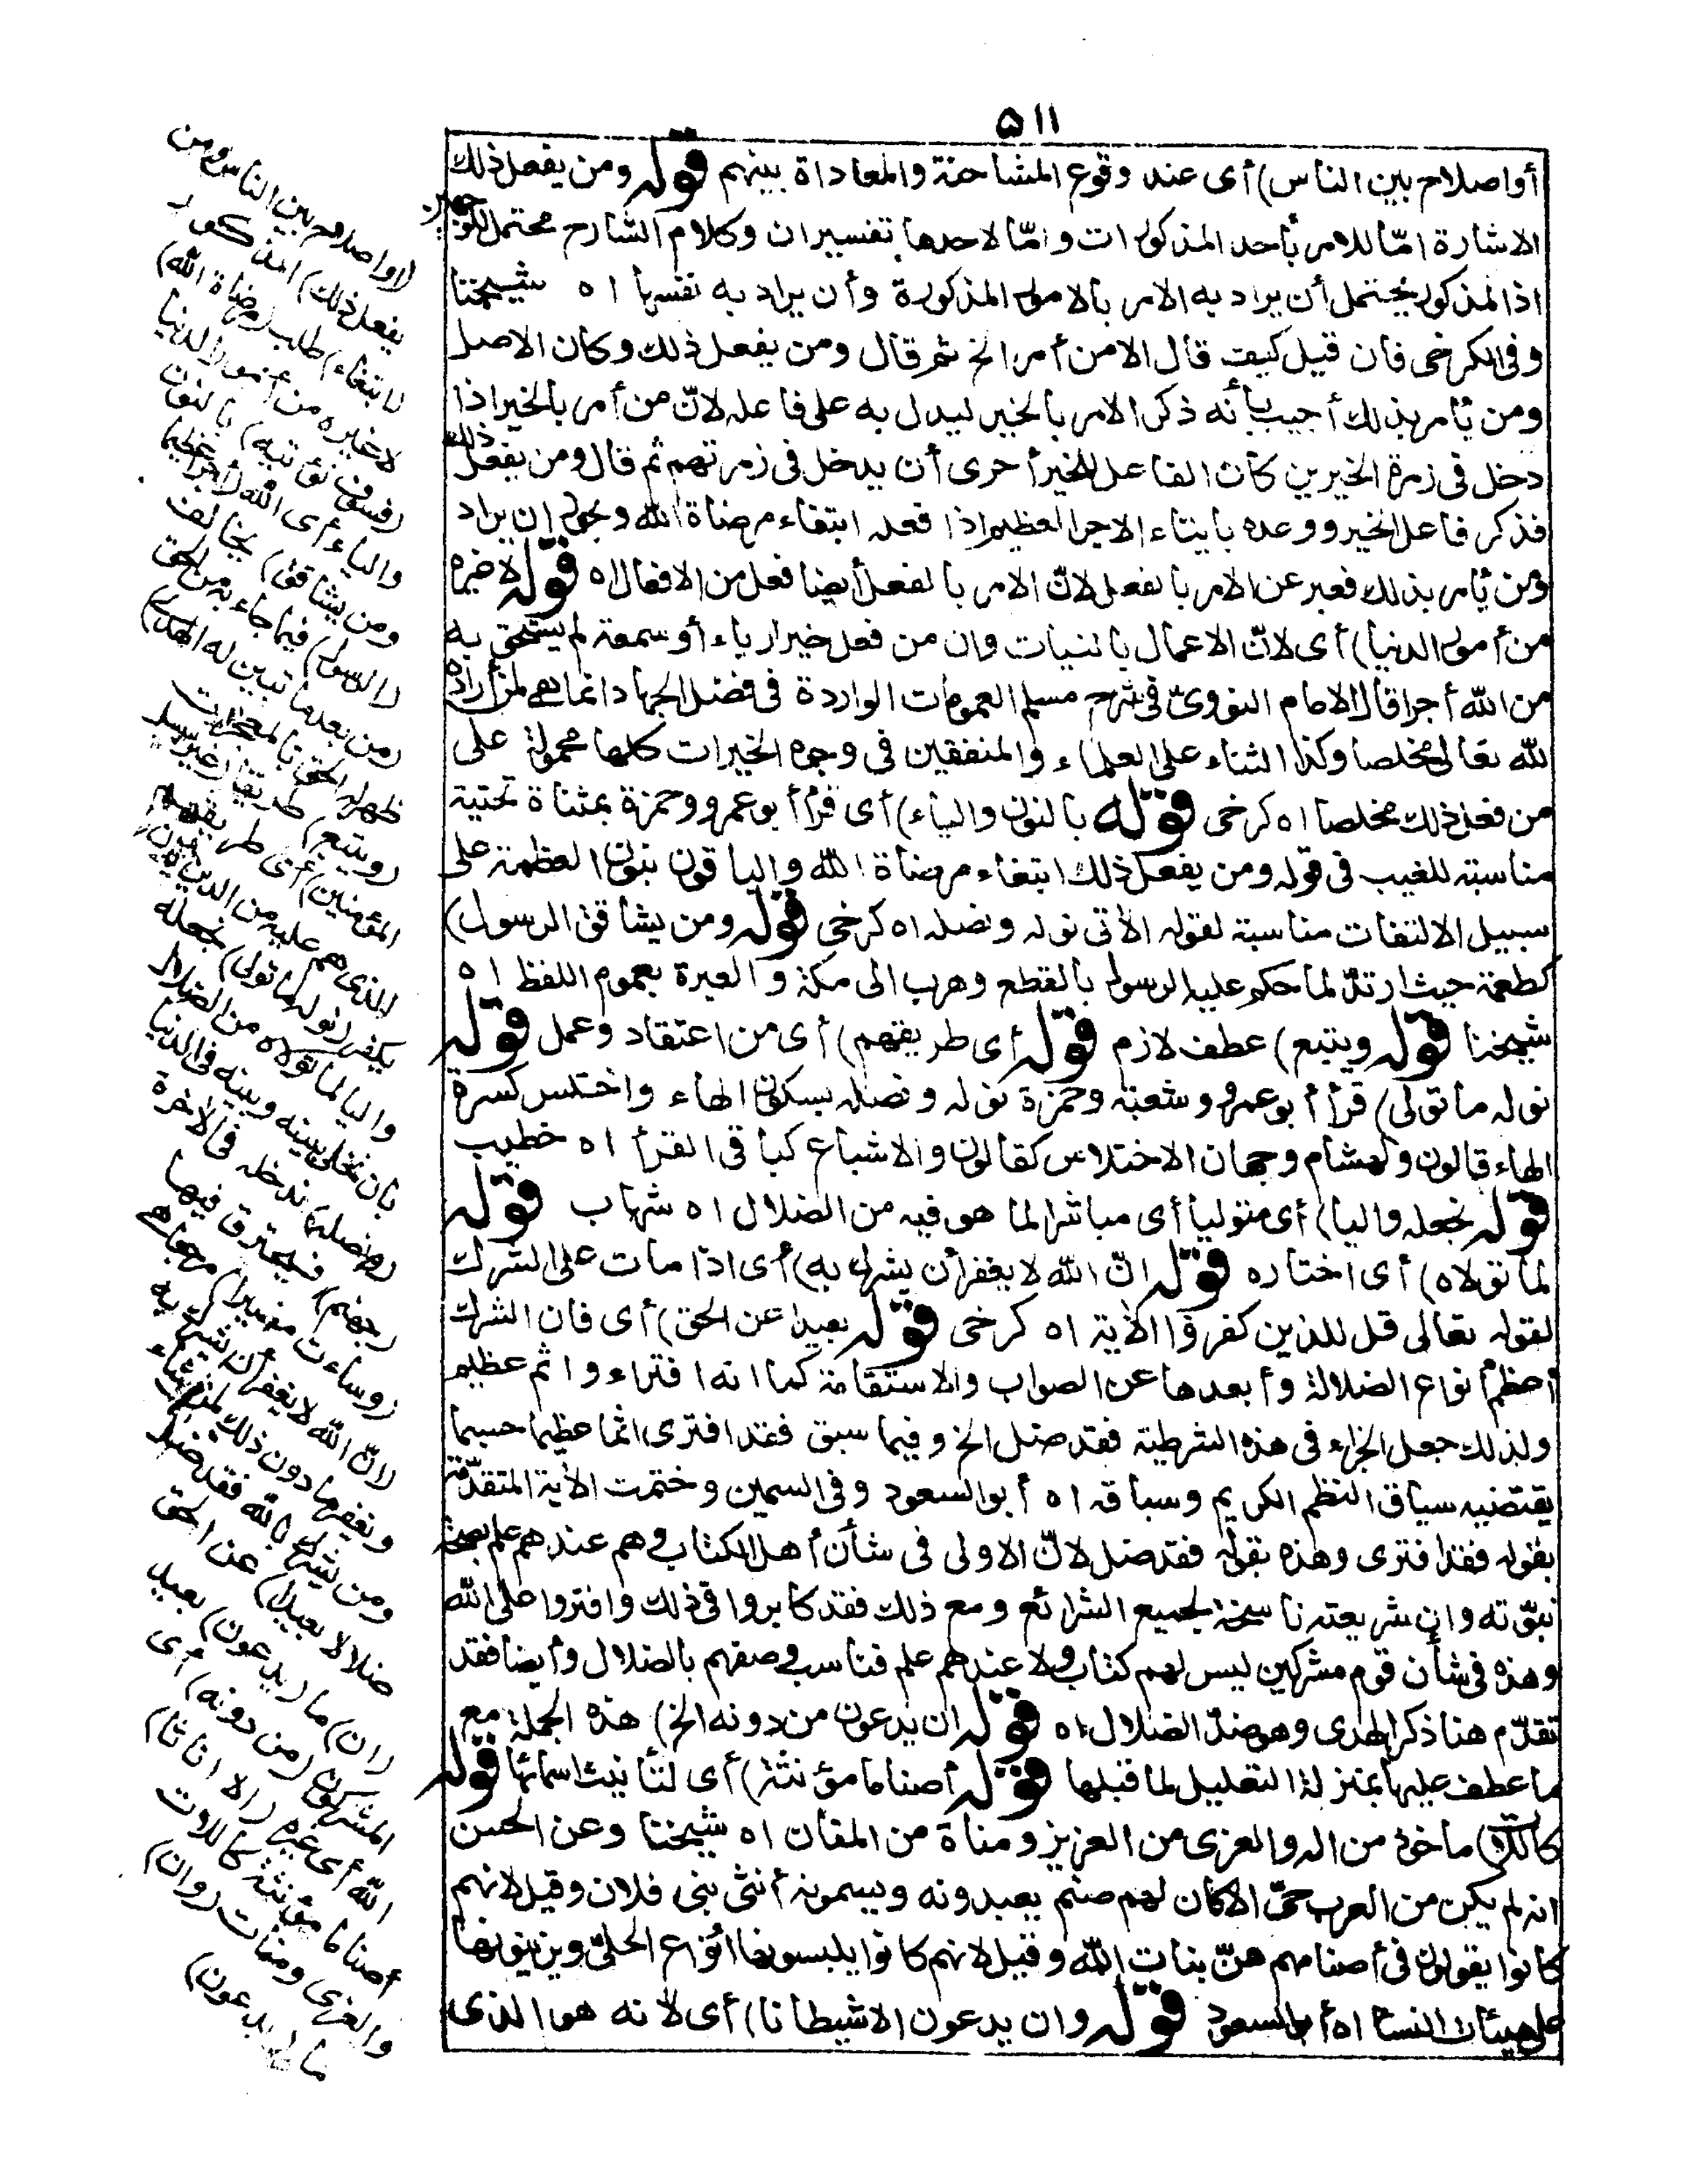 ٥١١
أو اصلاح بين الناس) أى عند وقوع المشاحنة والمعاداة بينهم قوله ومن يفعل ذلك
الاشارة امّا للامر بأحد المذكورات وامّا لاحدها تفسيران وكلام الشارح محتمل للوجهين
اذ المذكور يحتمل أن يراد به الامر بالامور المذكورة وأن يراد به نفسها اه شيخنا
وفى الكرخى فان قيل كيف قال الا من أمر الخ ثم قال ومن يفعل ذلك وكان الاصل
ومن يأمر بذلك أجيب بأنه ذكر الامر بالخير ليدل به على فاعله لانّ من أمر بالخير اذا
دخل فى زمرة الخيرين كان الفاعل للخير أحرى أن يدخل فى زمرتهم ثم قال ومن يفعل ذلك
فذكر فاعل الخير ووعده بايتاء الاجر العظيم اذا فعله ابتغاء مرضاة الله ويجوز ان يراد
ومن يأمر بذلك فعبر عن الامر بالفعل لانّ الامر بالفعل أيضا فعل من الافعال اه قوله لا غيره
من أمور الدنيا) أى لانّ الاعمال بالنيات وان من فعل خيرا رياء أو سمعة لم يستحق به
من الله أجرا قال الامام النووىّ فى شرح مسلم العمومات الواردة فى فضل الجهاد انما هى لمن أراده
لله تعالى مخلصا وكذا الثناء على العلماء والمنفقين فى وجوه الخيرات كلها محمولة على
من فعل ذلك مخلصا اه كرخى قوله بالنون والياء) أى قرأ أبو عمرو وحمزة بمثناة تحتية
مناسبته للغيب فى قوله ومن يفعل ذلك ابتغاء مرضاة الله والباقون بنون العظمة على
سبيل الالتفات مناسبة لقوله الآتى نوله ونصله اه كرخى قوله ومن يشاقق الرسول)
كطعمة حيث ارتدّ لما حكم عليه الرسول بالقطع وهرب الى مكة والعبرة بعموم اللفظ اه
شيخنا قوله ويتبع) عطف لازم قوله أى طريقهم) أى من اعتقاد وعمل قوله
نوله ما تولى) قرأ أبو عمرو وشعبة وحمزة نوله ونصله بسكون الهاء واختلس كسرة
الهاء قالون ولهشام وجهان الاختلاس كقالون والاشباع كباقى القرّاء اه خطيب
قوله نجعله واليا) أى متوليا أى مباشرا لما هو فيه من الضلال اه شهاب قوله
لما تولاه) أى اختاره قوله انّ الله لا يغفر أن يشرك به) أى اذا مات على الشرك
لقوله تعالى قل للذين كفروا الآية اه كرخى قوله بعيدا عن الحق) أى فان الشرك
أعظم أنواع الضلالة وأبعدها عن الصواب والاستقامة كما انه افتراء واثم عظيم
ولذلك جعل الجزاء فى هذه الشرطية فقد ضل الخ وفيما سبق فقد افترى اثما عظيما حسبما
يقتضيه سياق النظم الكريم وسباقه اه أبو السعود وفى السمين وختمت الآية المتقدّمة
بقوله فقد افترى وهذه بقوله فقد ضل لانّ الاولى فى شأن أهل الكتاب وهم عندهم علم بصحة
نبوّته وان شريعته ناسخة لجميع الشرائع ومع ذلك فقد كابروا فى ذلك وافتروا على الله
وهذه فى شأن قوم مشركين ليس لهم كتاب ولا عندهم علم فناسب وصفهم بالضلال وأيضا فقد
تقدّم هنا ذكر الهدى وهو ضدّ الضلال اه قوله ان يدعون من دونه الخ) هذه الجملة مع
ما عطف عليها بمنزلة التعليل لما قبلها قوله أصناما مؤنثة) أى لتأنيث اسمائها قوله
كاللات) مأخوذ من اله والعزى من العزيز ومناة من المنان اه شيخنا وعن الحسن
انه لم يكن من العرب حىّ الا كان لهم صنم يعبدونه ويسمونه أنثى بنى فلان وقيل لانهم
كانوا يقولون فى أصنامهم هنّ بنات الله وقيل لانهم كانوا يلبسونها أنواع الحلىّ ويزينونها
على هيئات النساء اه أبو السعود قوله وان يدعون الا شيطانا) أى لانه هو الذى
(أو اصلاح بين الناس ومن
يفعل ذلك) المذكور
(ابتغاء) طلب (مرضاة الله)
لا غيره من أمور الدنيا
(فسوف نؤتيه) بالنون
والياء أى الله (أجرا عظيما
ومن يشاقق) يخالف
(الرسول) فيما جاء به من الحق
(من بعد ما تبين له الهدى)
ظهر له الحق بالمعجزات
(ويتبع) طريقا (غير سبيل
المؤمنين) أى طريقهم
الذى هم عليه من الدين بأن
يكفر (نوله ما تولى) نجعله
واليا لما تولاه من الضلال
بان نخلى بينه وبينه فى الدنيا
(ونصله) ندخله فى الآخرة
(جهنم) فيحترق فيها
(وساءت مصيرا) مرجعا هى
(انّ الله لا يغفر أن يشرك به
ويغفر ما دون ذلك لمن يشاء
ومن يشرك بالله فقد ضل
ضلالا بعيدا) عن الحق
(ان) ما (يدعون) يعبد
المشركون (من دونه) أى
الله أى غيره (الا اناثا)
أصناما مؤنثة كاللات
والعزى ومناة (وان)
ما (يدعون)